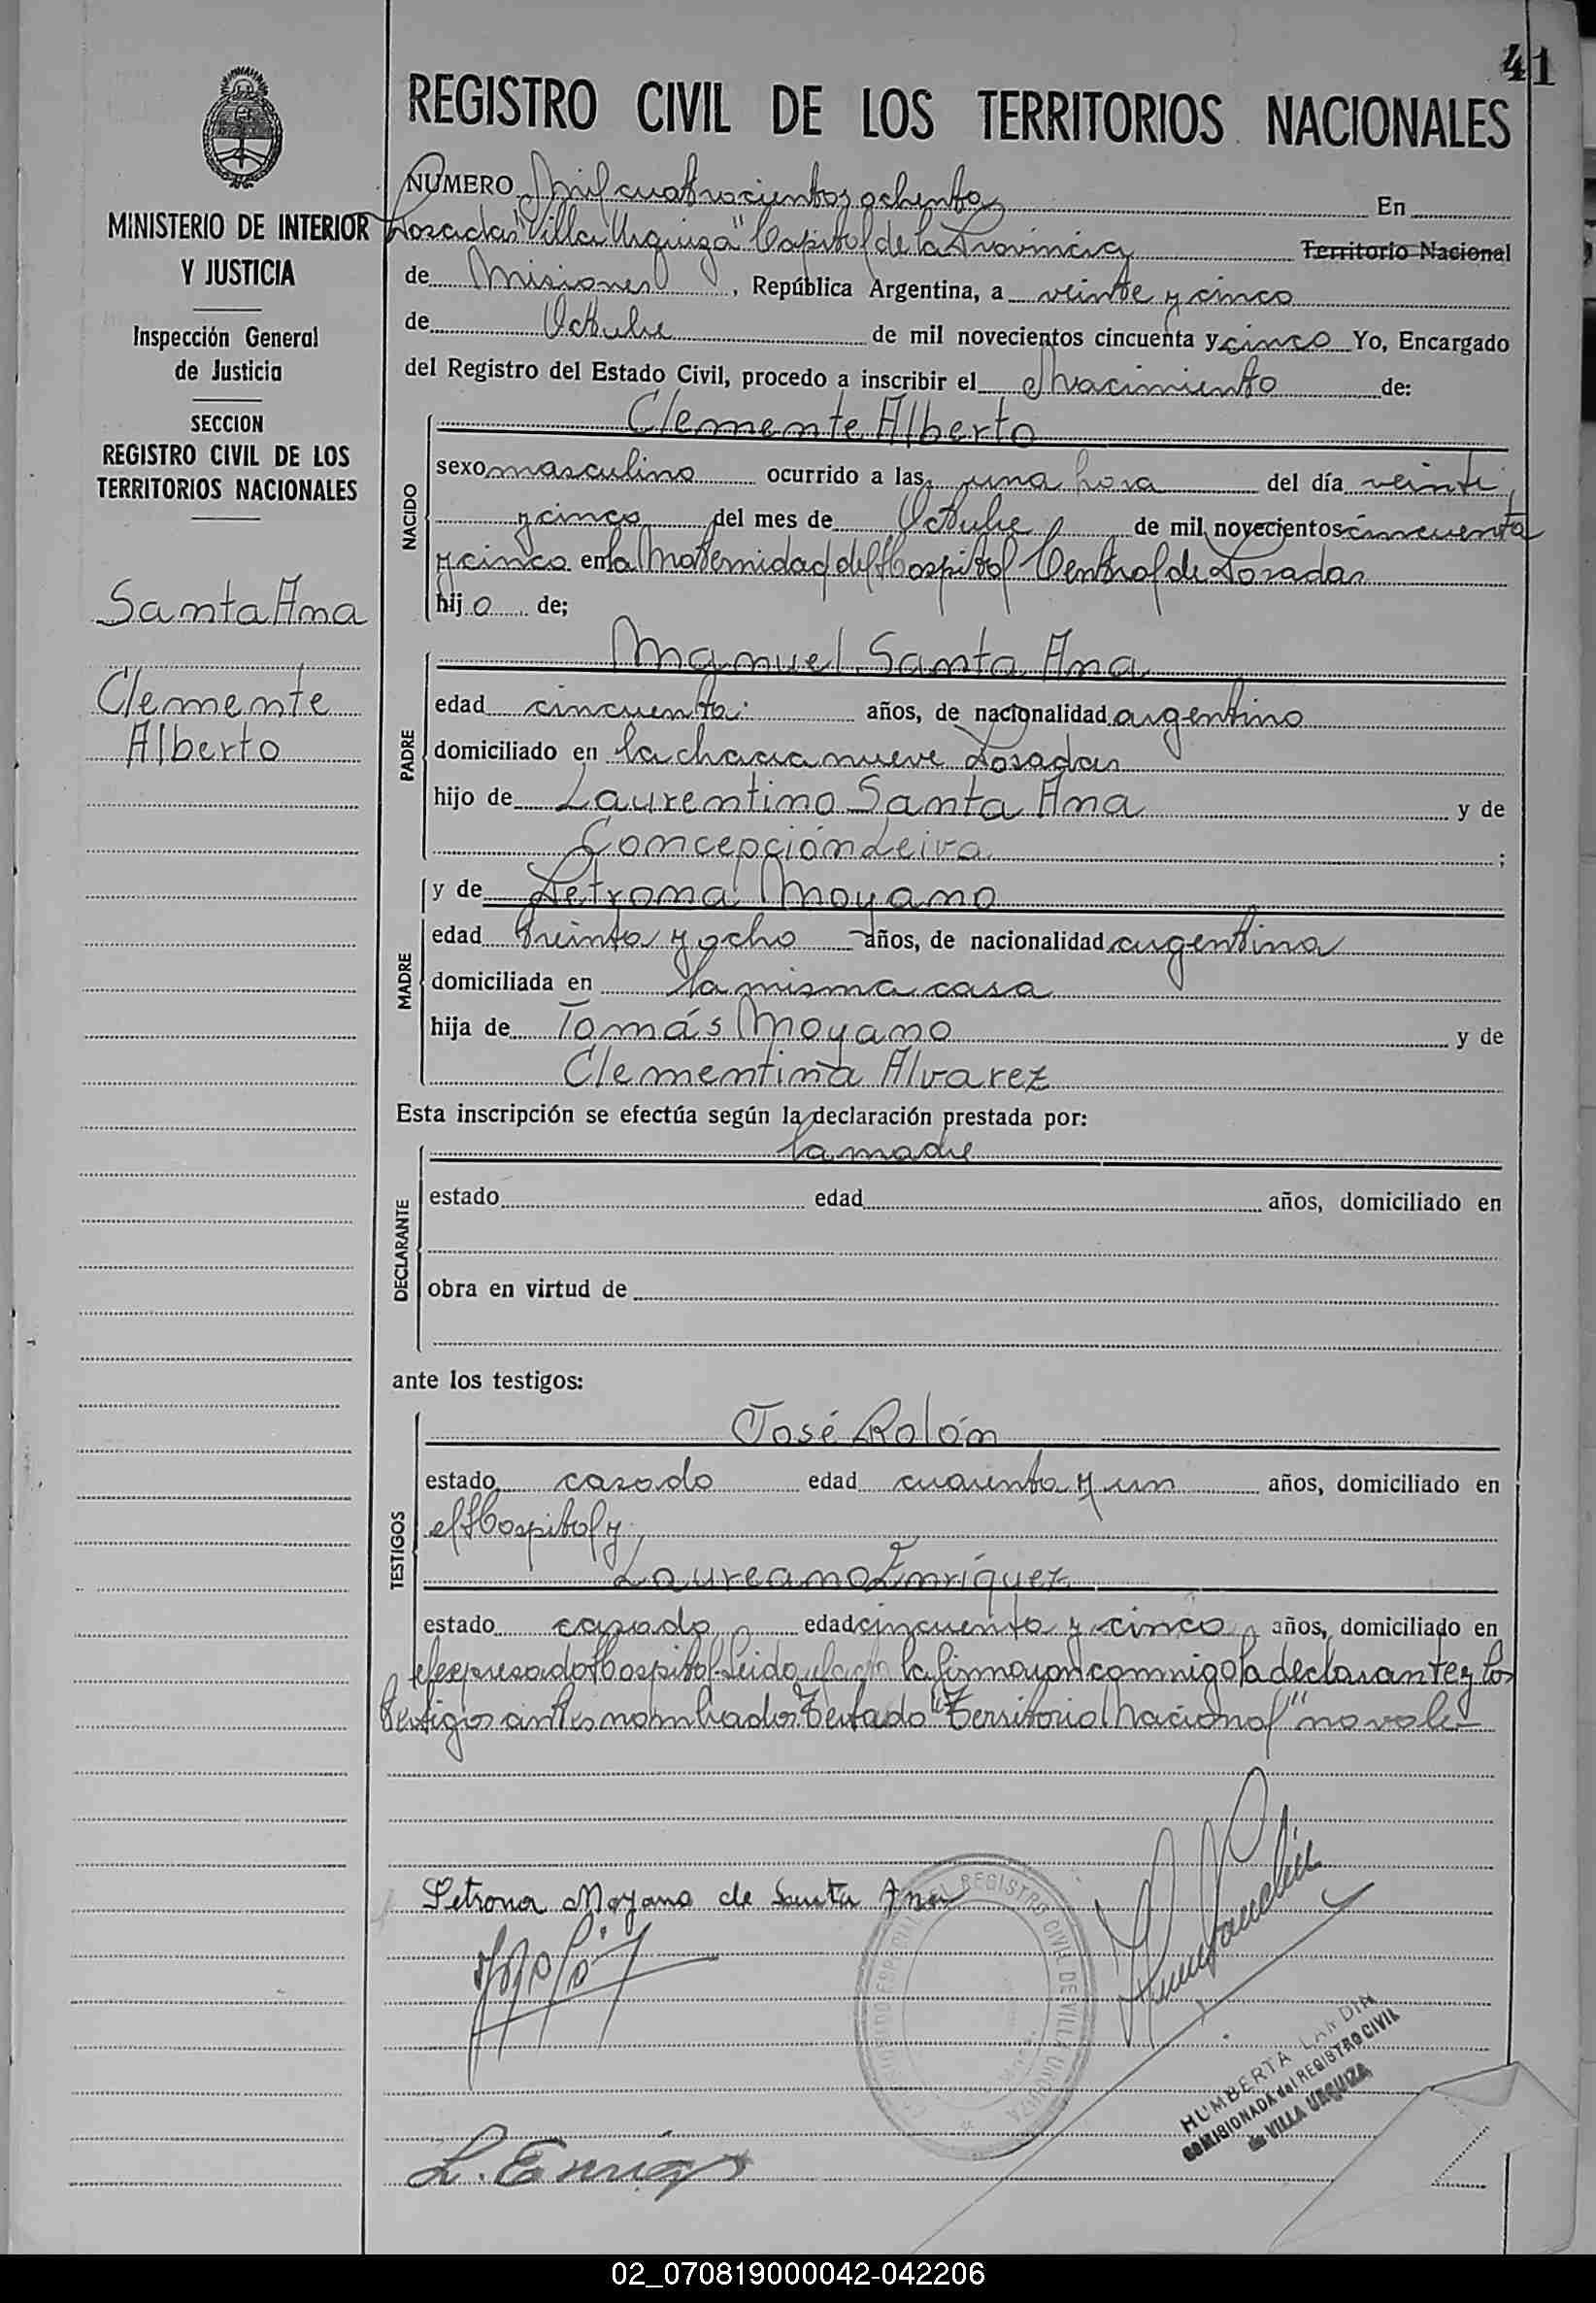 41
REGISTRO CIVIL DE LOS TERRITORIOS NACIONALES
MINISTERIO DE INTERIOR
Y JUSTICIA
Inspección General
de Justicia
SECCION
REGISTRO CIVIL DE LOS
TERRITORIOS NACIONALES
Santa Ana
Clemente
Alberto
NUMERO Mil cuatrocientos ochenta En
Posadas "Villa Urquiza" Capital de la Provincia Territorio Nacional
de Misiones, República Argentina, a veinte y cinco
de Octubre de mil novecientos cincuenta y cinco Yo, Encargado
del Registro del Estado Civil, procedo a inscribir el Nacimiento de:
NACIDO
Clemente Alberto
sexo masculino ocurrido a las una hora del día veinti
y cinco del mes de Octubre de mil novecientos cincuenta
y cinco en la Maternidad del Hospital Central de Posadas
hijo de;
PADRE
Manuel Santa Ana
edad cincuenta años, de nacionalidad argentino
domiciliado en la chacra nueve Posadas
hijo de Laurentino Santa Ana y de
Concepción Leiva ;
MADRE
y de Petrona Moyano
edad treinta y ocho años, de nacionalidad argentina
domiciliada en la misma casa
hija de Tomás Moyano y de
Clementina Alvarez
Esta inscripción se efectúa según la declaración prestada por:
DECLARANTE
la madre
estado edad años, domiciliado en
obra en virtud de
ante los testigos:
TESTIGOS
José Rolón
estado casado edad cuarenta y un años, domiciliado en
el Hospital y
Laureano Enríquez
estado casado edad cincuenta y cinco años, domiciliado en
el expresado Hospital. Leido el acta la firmaron conmigo la declarante y los
testigos antes nombrados. Testado "Territorio Nacional" no vale-
Petrona Moyano de Santa Ana
L. Enriq
REGISTRO CIVIL DE VILLA URQUIZA
HUMBERTA LANDIN
COMISIONADA del REGISTRO CIVIL
de VILLA URQUIZA
02_070819000042-042206